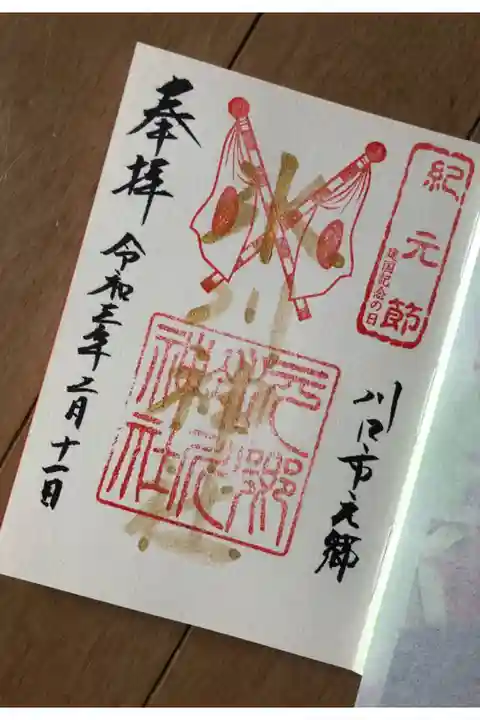 紀元節
建国記念の日
川口市元郷
氷川神社
元郷氷川神社
奉拝
令和三年二月十一日